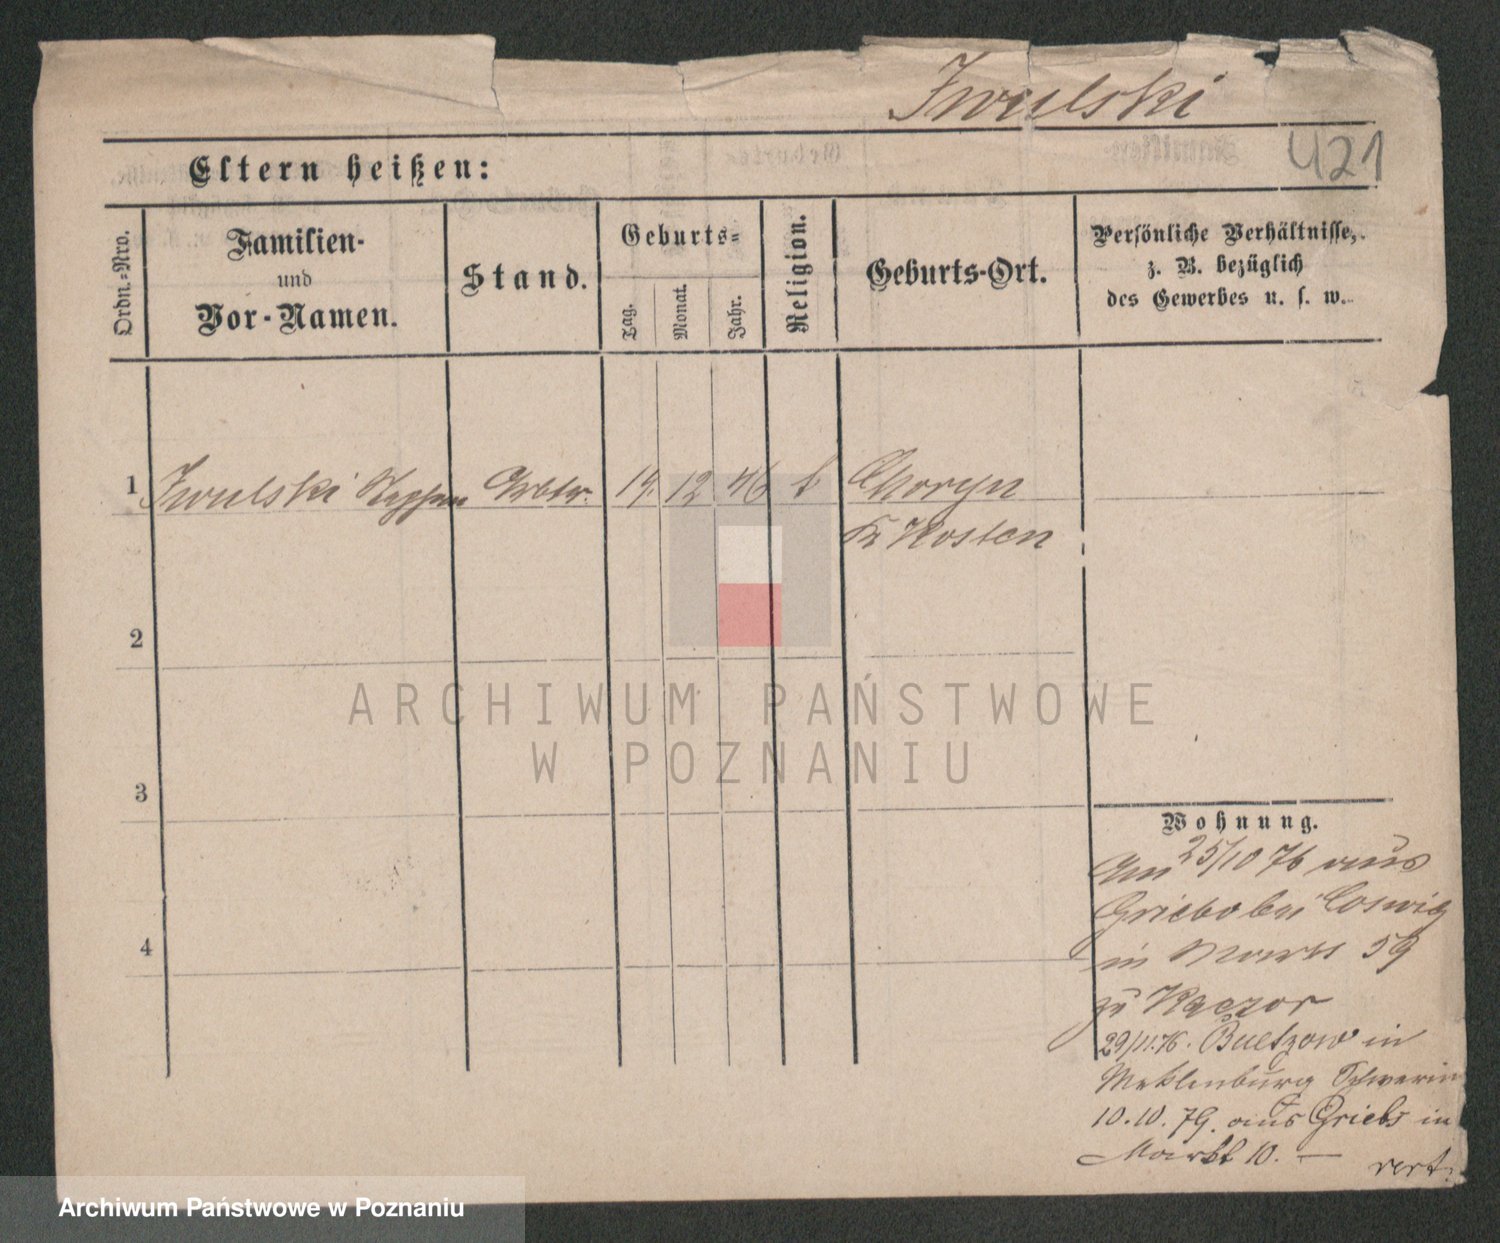 Iwulski
421
Eltern heißen:
Ordn.-Nro.
Familien-
und
Vor-Namen.
Stand.
Geburts-
Tag.
Monat.
Jahr.
Religion.
Geburts-Ort.
Persönliche Verhältnisse,
z. B. bezüglich
des Gewerbes u. s. w.
1 Iwulski Stephan Arbtr. 14. 12 46 k Choryn
Kr Kosten
2
ARCHIWUM PAŃSTWOWE
W POZNANIU
3
Wohnung.
Am 25/10 76 aus
Griebo bei Coswig
in Markt 59
4
zu Kaczor
29/11.76. Buetzow in
Meklenburg Schwerin
10.10.79. aus Griebs in
Markt 10. — vert.
Archiwum Państwowe w Poznaniu